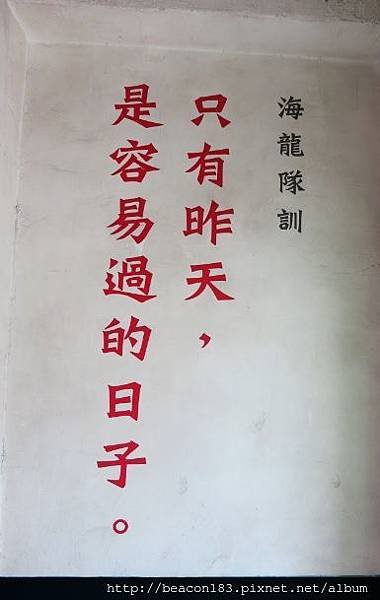 海龍隊訓
只有昨天，
是容易過的日子。
http://beacon183.pixnet.net/album